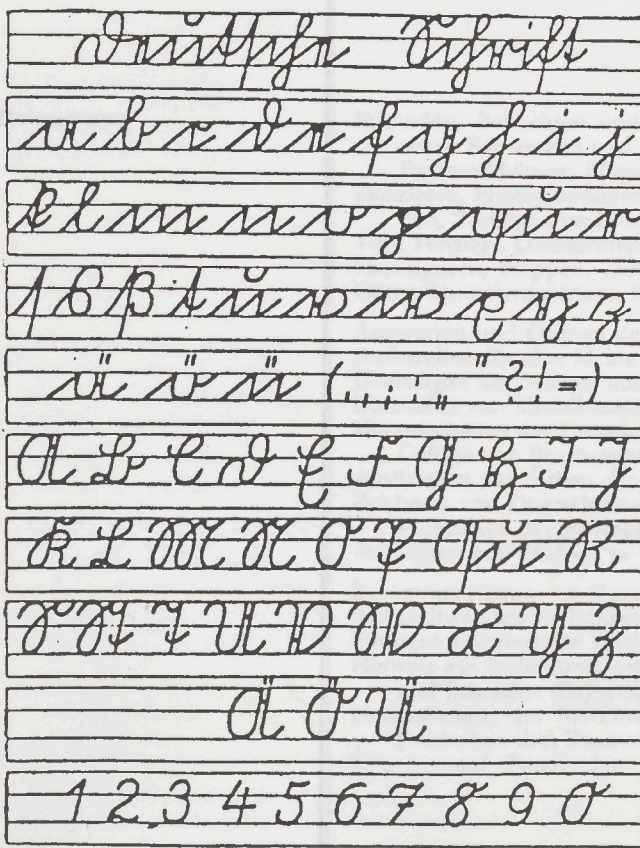 Deutsche Schrift
a b c d e f g h i j
k l m n o p qu r
ſ s ß t u v w x y z
ä ö ü (., ; : „ " ? ! = )
A B C D E F G H I J
K L M N O P Qu R
S St T U V W X Y Z
Ä Ö Ü
1 2 3 4 5 6 7 8 9 0